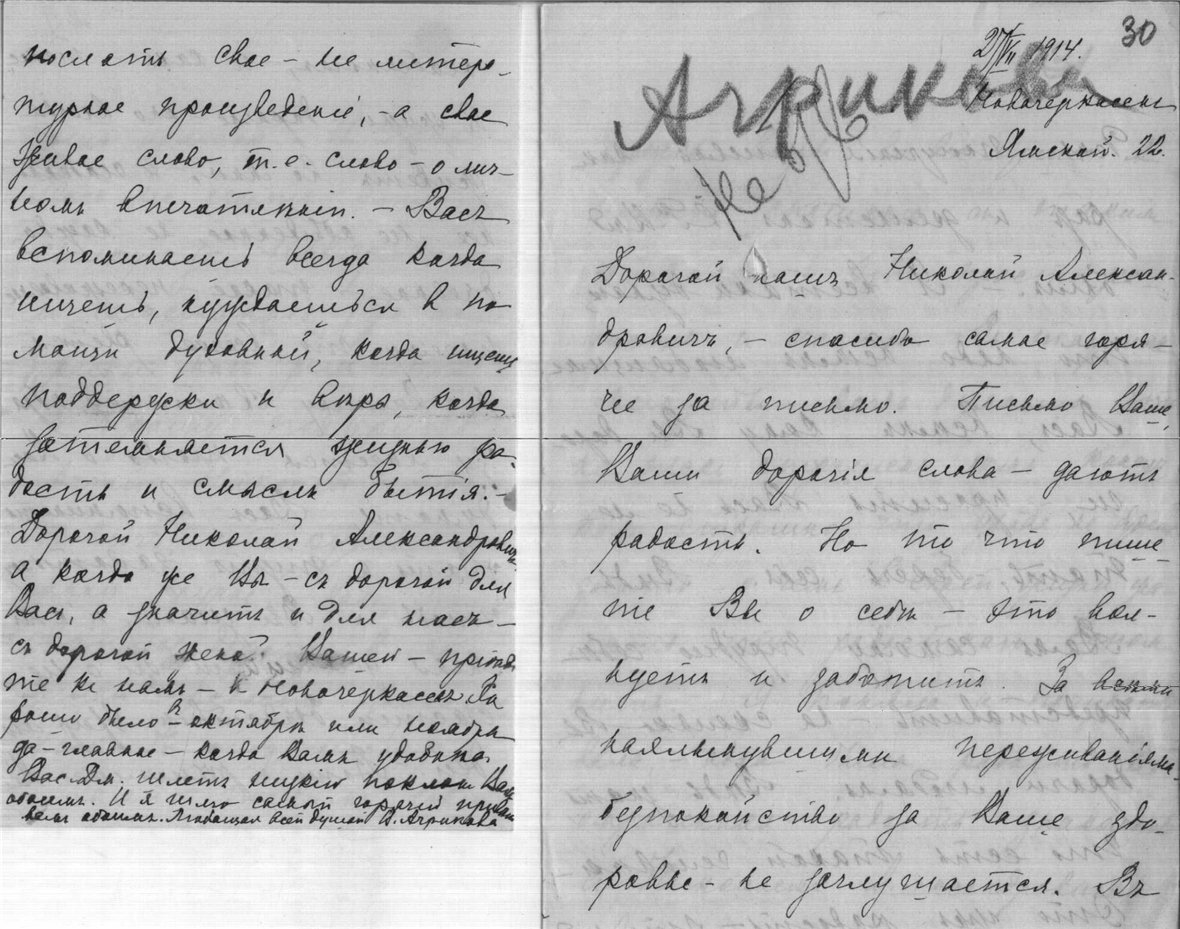 послать свое – не литера-
турное произведенiе, – а свое
живое слово, т.е. слово – о лич-
номъ впечатленiи. – Васъ
вспоминаешь всегда когда
ищешь, нуждаешься в по
мощи духовной, когда ищешь
поддержки и веры, когда
затемняется жизнью ра-
дость и смыслъ бытiя. –
Дорогой Николай Александровичъ
а когда же Вы – съ дорогой для
Васъ, а значитъ и для насъ –
съ дорогой женой Вашей – прiѣди
те къ намъ – в Новочеркасскъ. Хо
рошо было в октябрѣ или ноябрѣ
да – главное – когда Вамъ удобно.
Вас. Дм. шлетъ низкiй поклон Вамъ
обоимъ. И я шлю самый горячiй привѣт
вамъ обоимъ. Любящая всей душой В. Агрикова
30
27/VII 1914.
Агрикова
Новочеркасскъ
Ямской. 22.
Дорогой нашъ Николай Алексан-
дровичъ, – спасибо самое горя-
чее за письмо. Письмо Ваше,
Ваши дорогiя слова – даютъ
радость. Но то что пише-
те Вы о себѣ – это вол-
нуетъ и заботитъ. За всѣми
нахлынувшими переживанiями
безпокойство за Ваше здо-
ровье – не заглушается. Въ